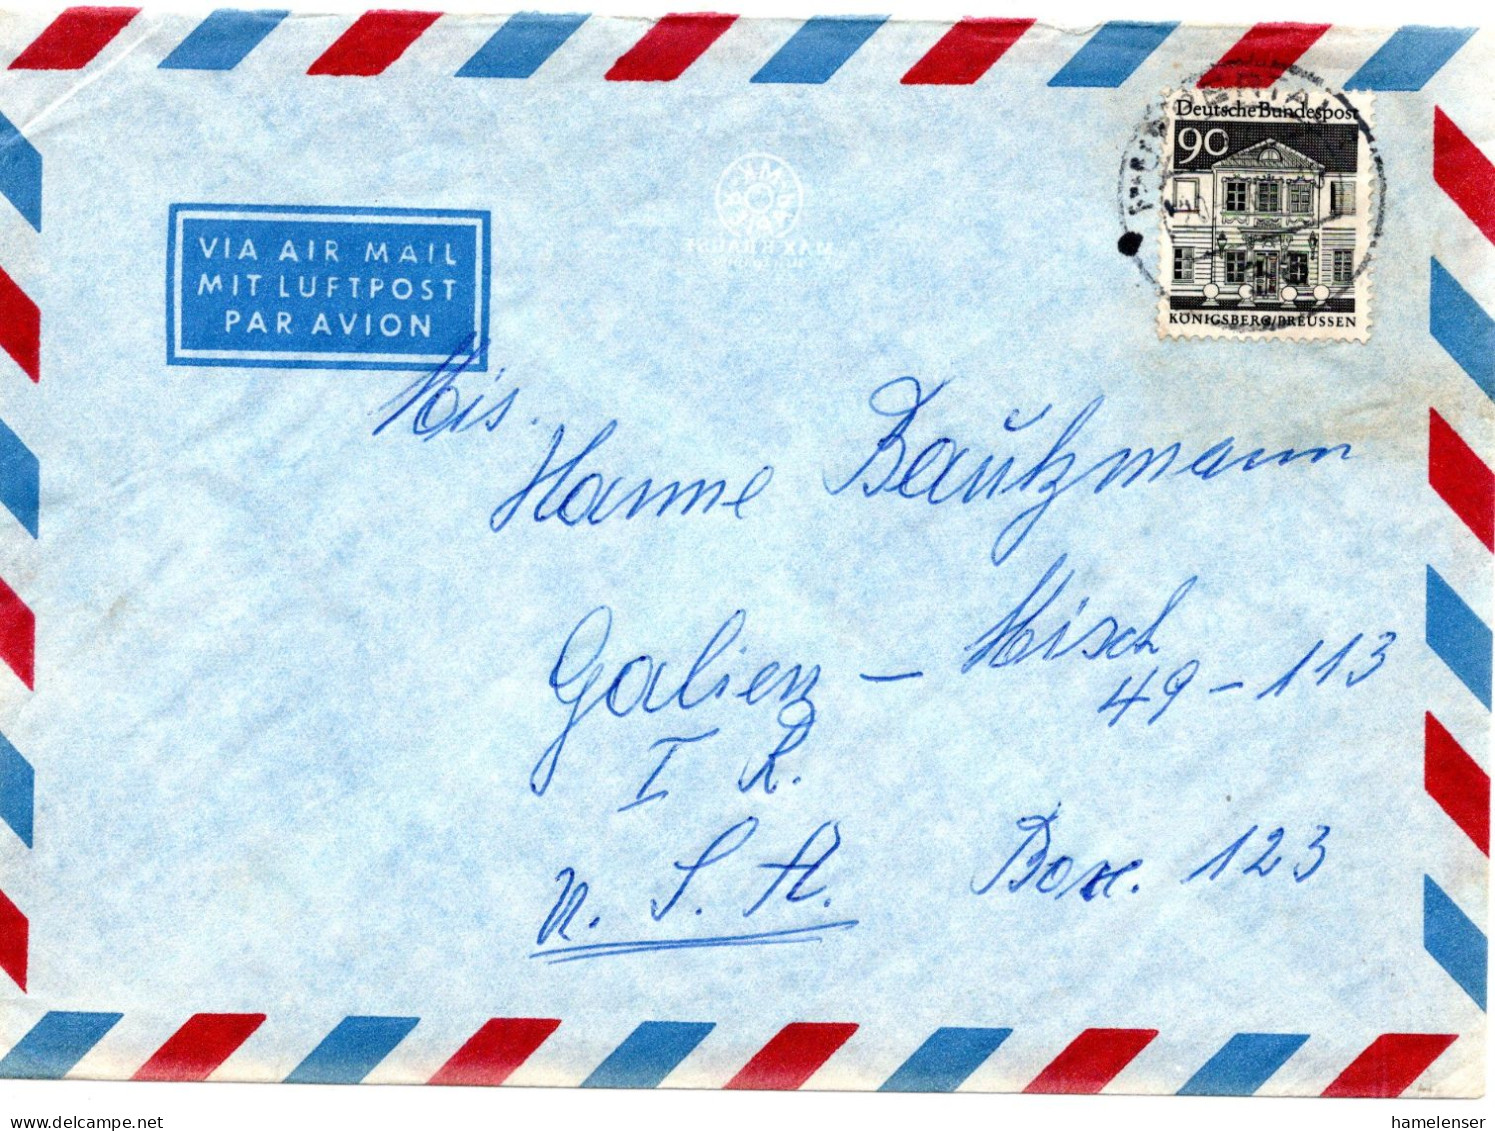 Deutsche Bundespost
90
KÖNIGSBERG/PREUSSEN
VIA AIR MAIL
MIT LUFTPOST
PAR AVION
Mis.
Hanne Baŭtzmann
Galien - Misch
49-113
I R.
U. S. A. Box. 123
hamelenser